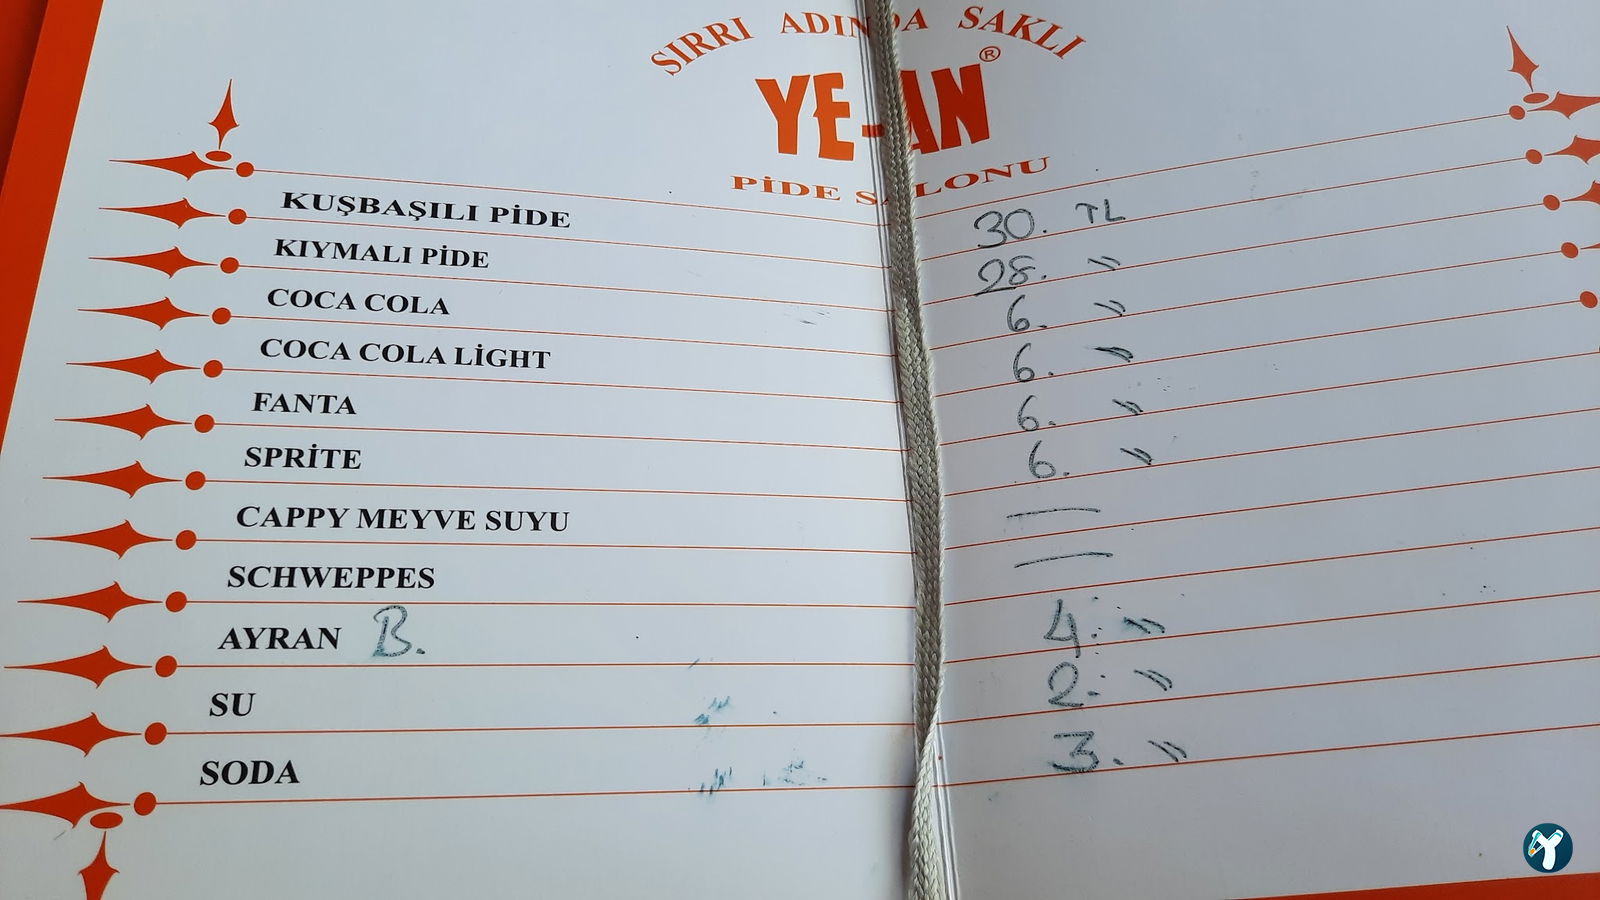 SIRRI ADINDA SAKLI
YE-AN®
PİDE SALONU
KUŞBAŞILI PİDE 30. TL
KIYMALI PİDE 28. "
COCA COLA 6. "
COCA COLA LİGHT 6. "
FANTA 6. "
SPRİTE 6. "
CAPPY MEYVE SUYU —
SCHWEPPES —
AYRAN B. 4. "
SU 2. "
SODA 3. "